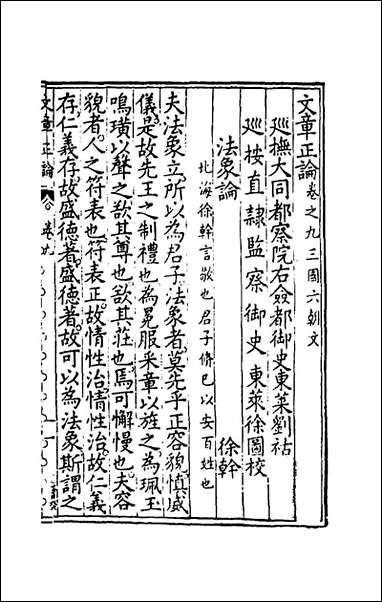 文章正論卷之九 三國六朝文
廵撫大同都察院右僉都御史東萊劉祜
廵按直隸監察御史東萊徐圖校
法象論 徐幹
北海徐幹言敬也君子脩巳以安百姓也
夫法象立所以為君子法象者莫先乎正容貌慎威
儀是故先王之制禮也為冕服采章以旌之為珮玉
鳴璜以聲之欲其尊也欲其莊也焉可懈慢也夫容
貌者人之符表也符表正故情性治情性治故仁義
存仁義存故盛德著盛德著故可以為法象斯謂之
文章正論 卷九 一